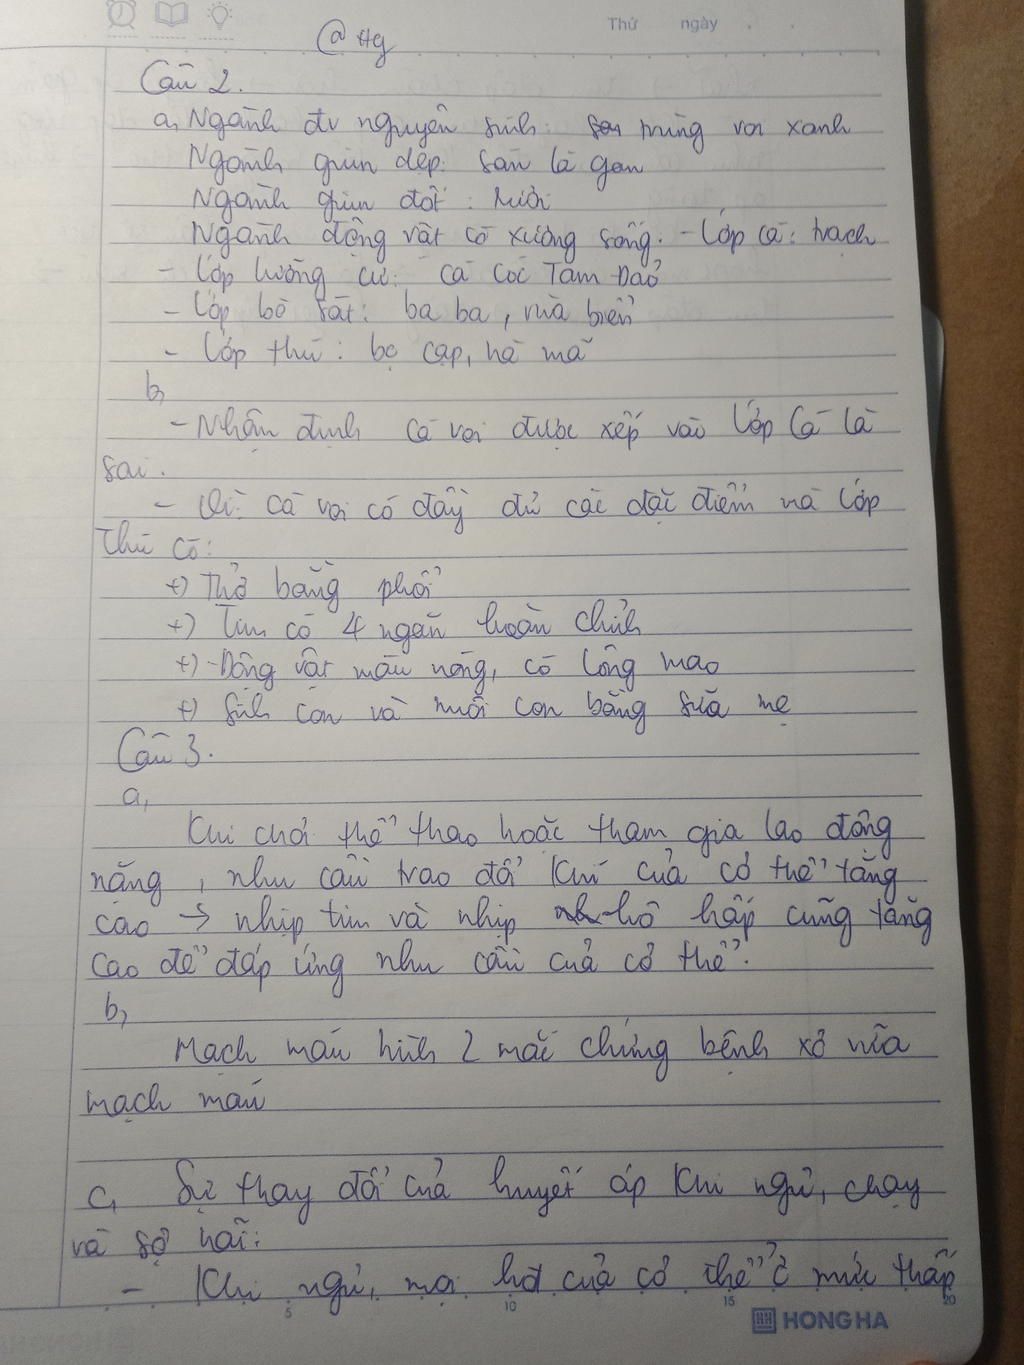 Thứ ngày
@ Hg
Câu 2.
a, Ngành đv nguyên sinh: trùng roi xanh
Ngành giun dẹp: sán lá gan
Ngành giun đốt: rươi
Ngành động vật có xương sống. - Lớp cá: trạch
- Lớp lưỡng cư: cá cóc Tam Đảo
- Lớp bò sát: ba ba, rùa biển
- Lớp thú: bọ cạp, hà mã
b,
- Nhận định cá voi được xếp vào lớp Cá là
sai.
- Vì: cá voi có đầy đủ các đặc điểm mà lớp
Thú có:
+) Thở bằng phổi
+) Tim có 4 ngăn hoàn chỉnh
+) Động vật máu nóng, có lông mao
+) Sinh con và nuôi con bằng sữa mẹ
Câu 3.
a,
Khi chơi thể thao hoặc tham gia lao động
nặng, nhu cầu trao đổi khí của cơ thể tăng
cao → nhịp tim và nhịp hô hấp cũng tăng
cao để đáp ứng nhu cầu của cơ thể.
b,
Mạch máu hình 2 mắc chứng bệnh xơ vữa
mạch máu
c, Sự thay đổi của huyết áp khi ngủ, chạy
và sợ hãi:
- Khi ngủ, mọi hđ của cơ thể ở mức thấp
5 10 15 20
HH HONG HA